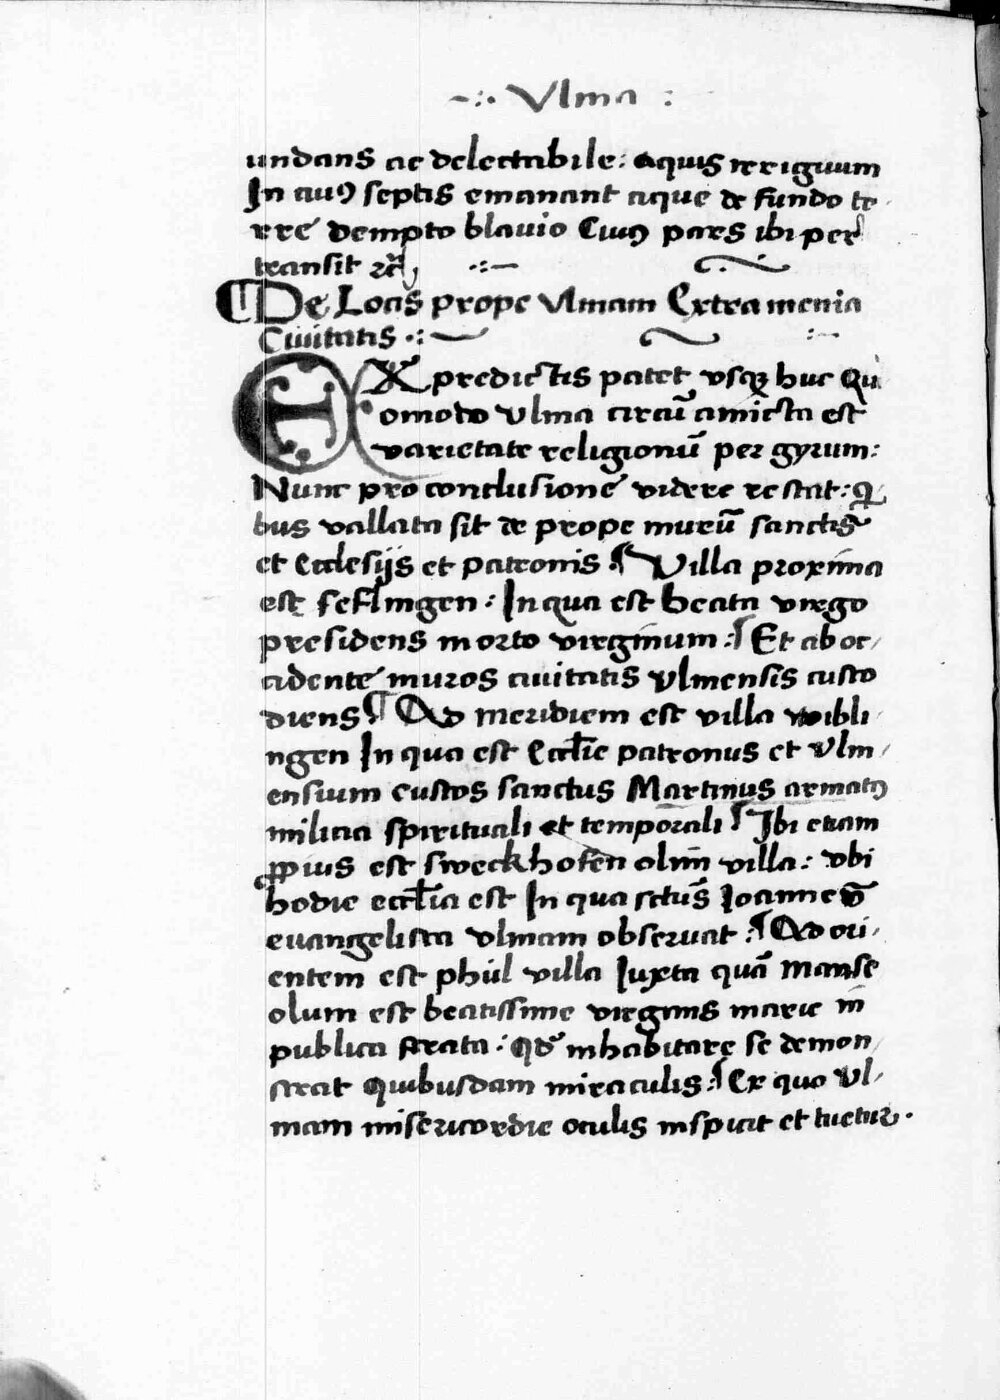 -:· Vlma :
undans ac delectabile: aquis irriguum
In cuiꝰ septis emanant aque de fundo te-
rre dempto blauio Cuiꝰ pars ibi per
transit ꝛc̃
¶ De Locis prope Vlmam Extra menia
Ciuitatis ·:-
EX predictis patet vsqꝫ huc Qu
omodo Vlma circũ amicta est
varietate religionũ per gyrum:
Nunc pro conclusione videre restat: Qͥ
bus vallata sit de prope murũ sanctis
et Ecclesijs et patronis ¶ Villa proxima
est seflingen: In qua est beata virgo
presidens in orto virginum: ¶ Et ab oc/
cidente muros ciuitatis vlmensis custo
diens ¶ Ad meridiem est villa wibli/
ngen In qua est Eccl̃ie patronus et Vlm/
ensium custos sanctus Martinus armatꝰ
milicia spirituali et temporali ¶ Ibi etiam
ꝓpius est sweckhofen olim villa: vbi
hodie eccl̃ia est In qua sctũs Ioannes
euangelista vlmam obseruat: ¶ Ad ori/
entem est phůl villa Iuxta quã manse
olum est beatissime virginis marie in
publica strata: Qđ inhabitare se demon/
strat Quibusdam miraculis: ¶ Ex quo Vl/
mam misericordie oculis inspicit et tuetur.